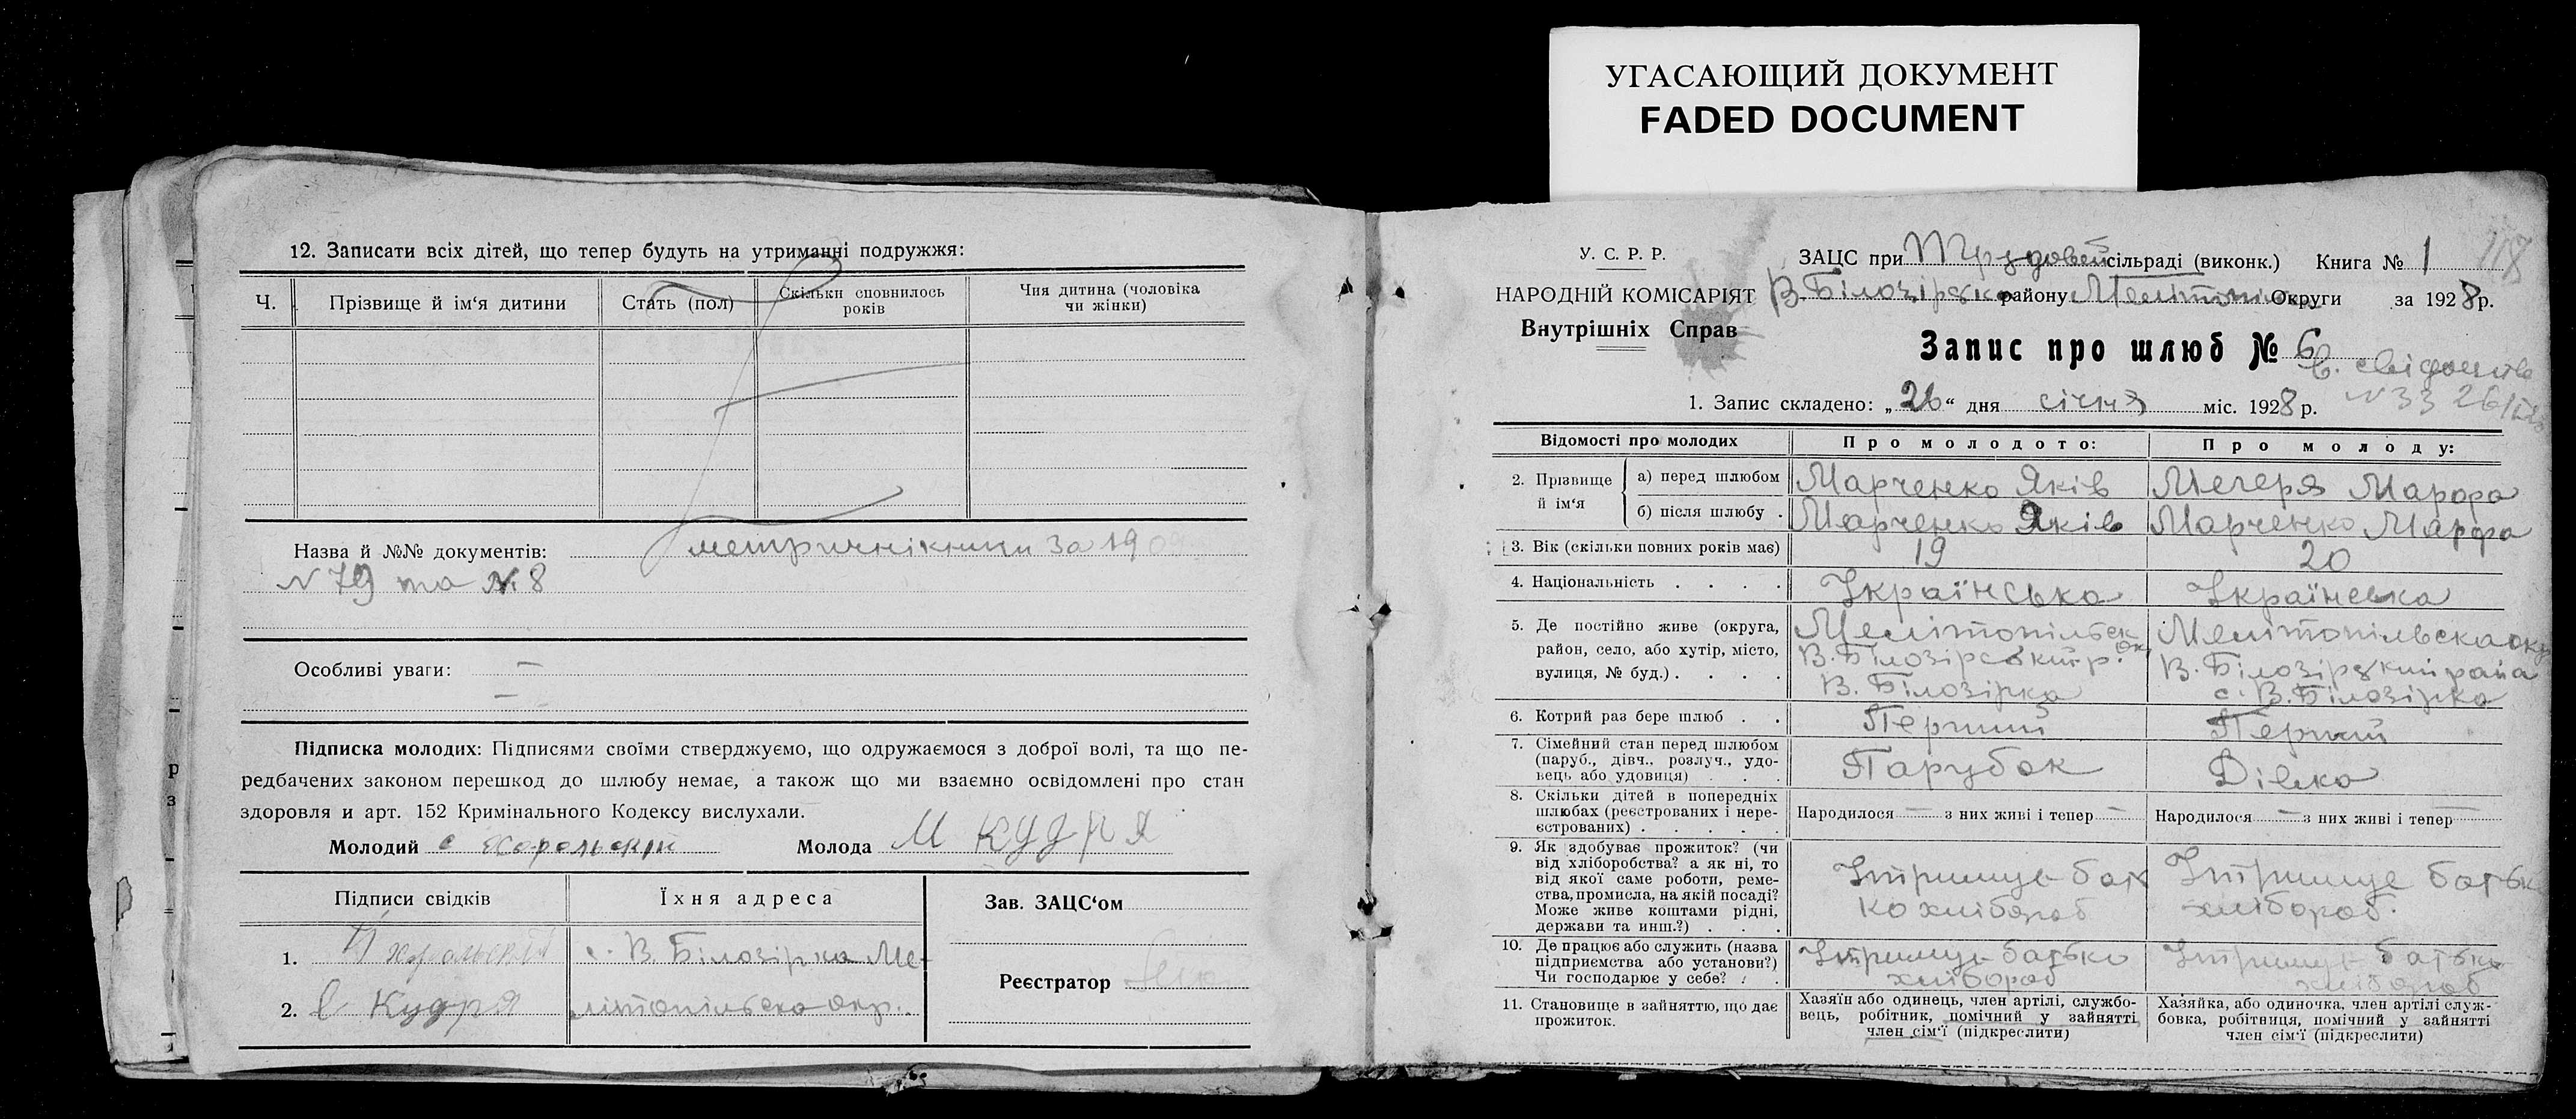 УГАСАЮЩИЙ ДОКУМЕНТ
FADED DOCUMENT
12. Записати всіх дітей, що тепер будуть на утриманні подружжя:
Ч.
Прізвище й ім'я дитини
Стать (пол)
Скільки сповнилось
років
Чия дитина (чоловіка
чи жінки)
Назва й №№ документів: за 19
N 79 та N 8
Особливі уваги: —
—
Підписка молодих: Підписями своїми стверджуємо, що одружаємося з доброї волі, та що пе-
редбачених законом перешкод до шлюбу немає, а також що ми взаємно освідомлені про стан
здоровля и арт. 152 Кримінального Кодексу вислухали.
Молодий с Хорольский Молода М Кудря
Підписи свідків
Їхня адреса
1.
с. В. Білозірка Ме-
2. Кудря
літопільска окр.
Зав. ЗАЦС'ом
Реєстратор
118
У. С. Р. Р.
НАРОДНІЙ КОМІСАРІЯТ
Внутрішніх Справ
ЗАЦС при сільраді (виконк.) Книга № 1
В. Білозірско району Округи за 1928 р.
Запис про шлюб № 6
в. свідоцтво
N 33 26/
1. Запис складено: „26“ дня січня міс. 1928 р.
Відомості про молодих
Про молодого:
Про молоду:
2. Прізвище й ім'я
а) перед шлюбом
Марченко Яків
Мегеря Марфа
б) після шлюбу .
Марченко Яків
Марченко Марфа
3. Вік (скільки повних років має)
19
20
4. Національність . . . .
Українська
Українська
5. Де постійно живе (округа,
район, село, або хутір, місто,
вулиця, № буд.) . . . .
Мелітопільск ок.
В. Білозірський р.
В. Білозірка
Мелітопільска окр
В. Білозірский района
с. В. Білозірка
6. Котрий раз бере шлюб . .
Перший
Перший
7. Сімейний стан перед шлюбом
(паруб., дівч., розлуч., удо-
вець або удовиця) . . .
Парубок
Дівка
8. Скільки дітей в попередніх
шлюбах (реєстрованих і нере-
єстрованих) . . . . .
Народилося — з них живі і тепер —
Народилося — з них живі і тепер —
9. Як здобуває прожиток? (чи
від хліборобства? а як ні, то
від якої саме роботи, реме-
ства, промисла, на якій посаді?
Може живе коштами рідні,
держави та инш.?) . . .
Утримує бать
ко хлібороб
Утримує батьк
хлібороб.
10. Де працює або служить (назва
підприємства або установи?)
Чи господарює у себе? . .
Утримує батько
хлібороб
Утримує батько
хлібороб
11. Становище в зайняттю, що дає
прожиток.
Хазяїн або одинець, член артілі, службо-
вець, робітник, помічний у зайнятті
член сім'ї (підкреслити)
Хазяйка, або одиночка, член артілі служ-
бовка, робітниця, помічний у зайнятті
член сім'ї (підкреслити)